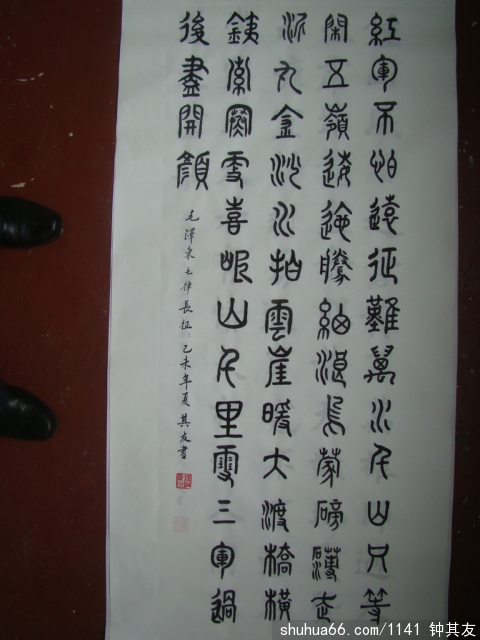 紅軍不怕遠征難萬水千山只等
閑五嶺逶迤騰細浪烏蒙磅礴走
泥丸金沙水拍雲崖暖大渡橋橫
銕索寒更喜岷山千里雪三軍過
後盡開顏
毛澤東七律長征 己未年夏其友書
shuhua66.com/1141 钟其友